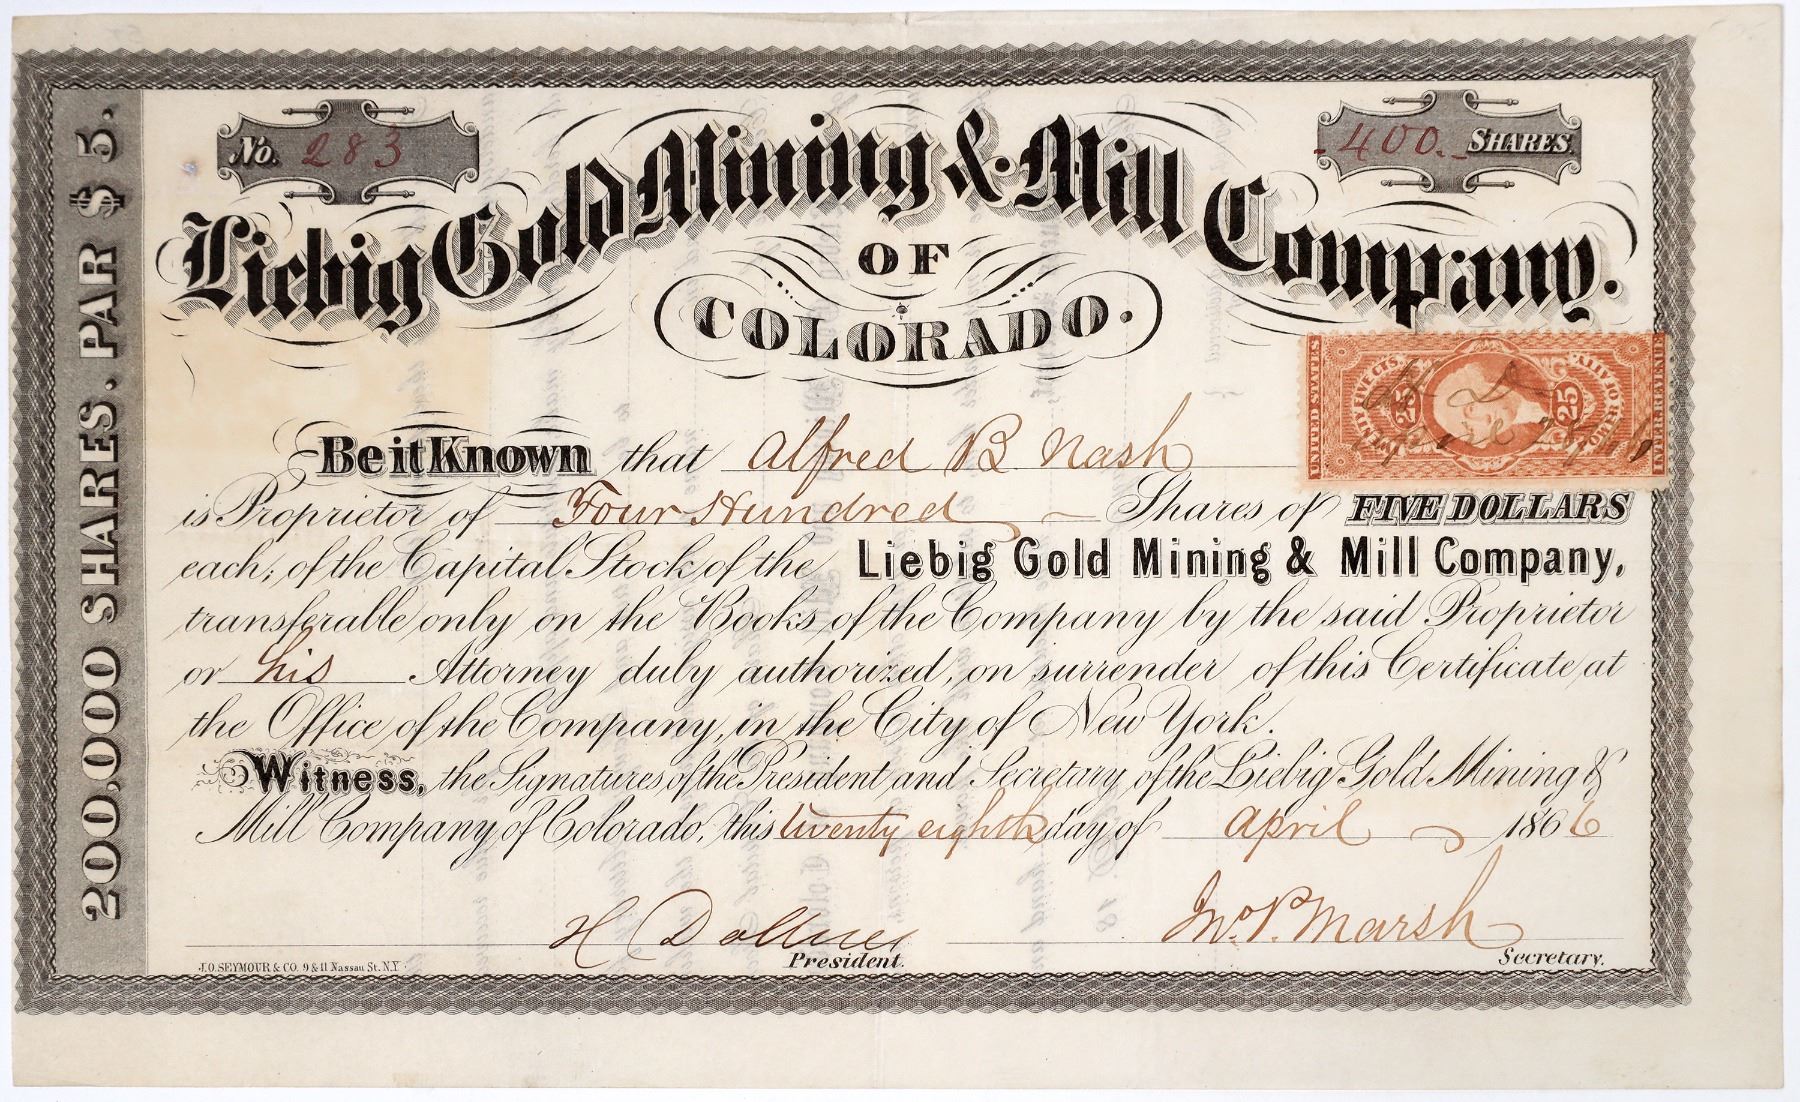 No. 283
400. SHARES.
Liebig Gold Mining & Mill Company.
OF
COLORADO.
200,000 SHARES. PAR $5.
UNITED STATES
TWENTY FIVE CTS.
25
25
INTER. REVENUE
Be it Known that Alfred B. Nash
is Proprietor of Four Hundred Shares of FIVE DOLLARS
each; of the Capital Stock of the Liebig Gold Mining & Mill Company,
transferable only on the Books of the Company by the said Proprietor
or his Attorney duly authorized, on surrender of this Certificate at
the Office of the Company, in the City of New York.
Witness, the Signatures of the President and Secretary of the Liebig Gold Mining &
Mill Company, of Colorado, this twenty eighth day of April 1866
H
Jno. P. Marsh
President.
Secretary.
J.O. SEYMOUR & CO. 9 & 11 Nassau St. N.Y.